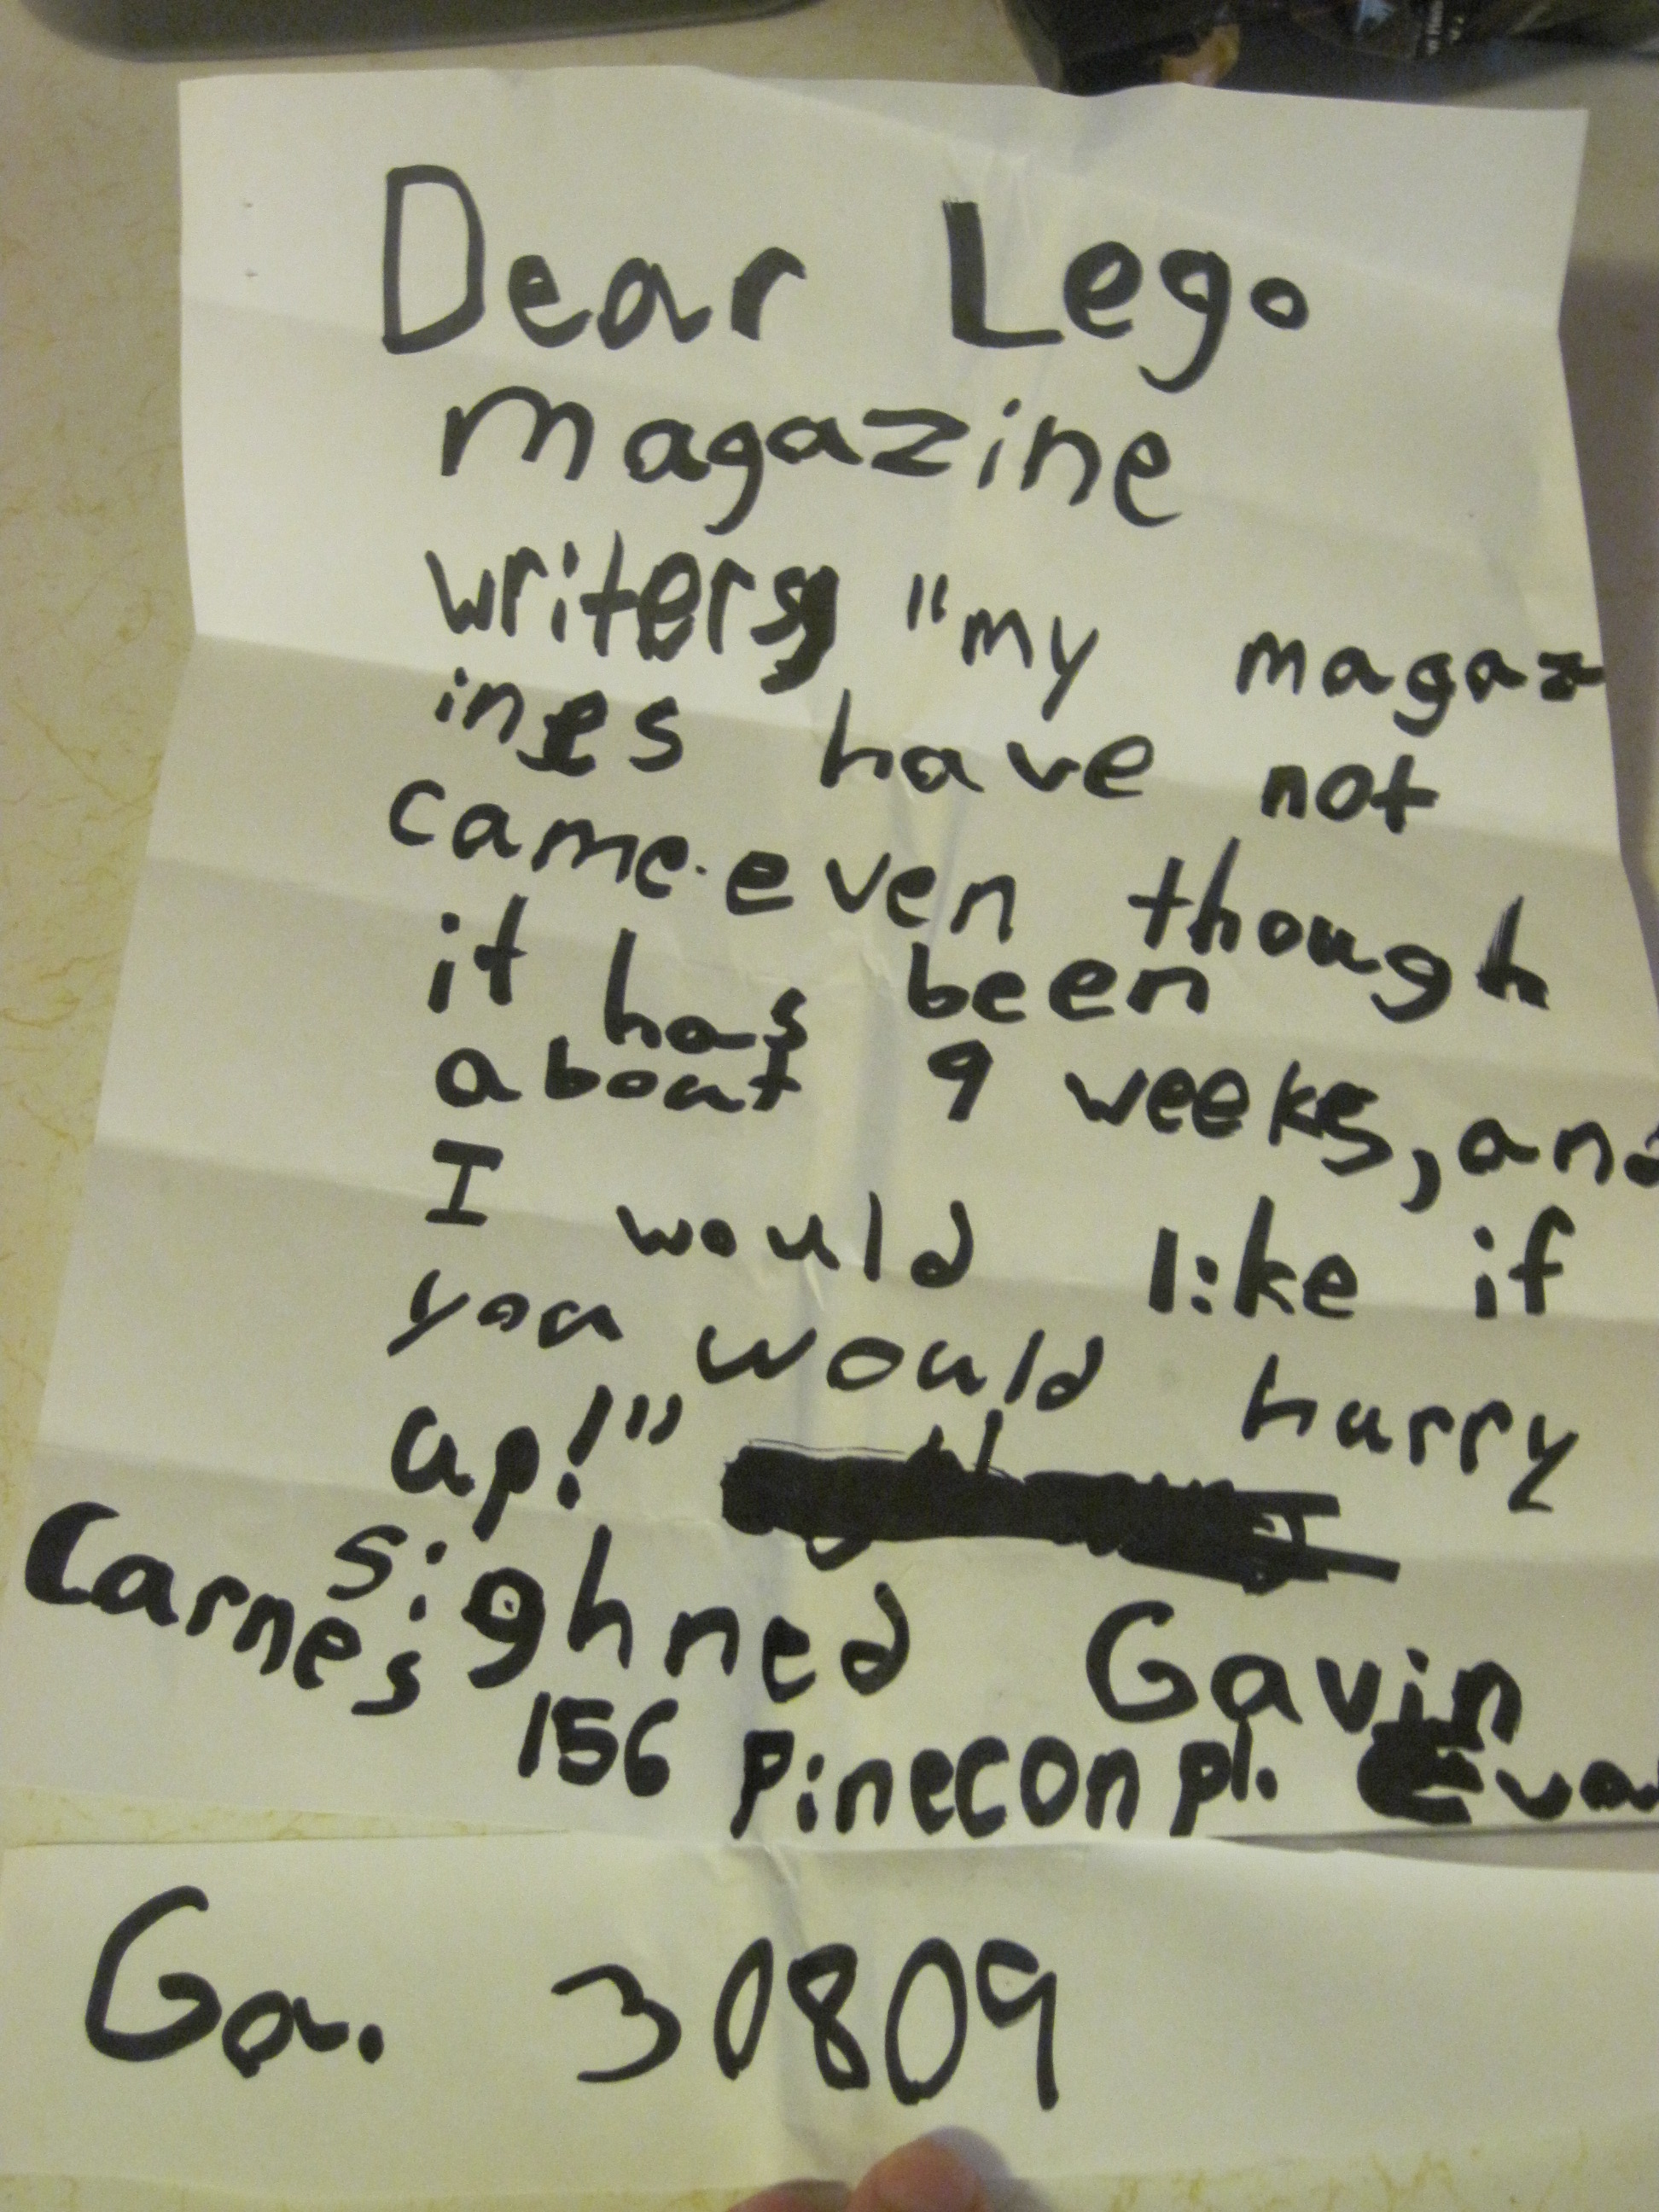 Dear Lego
magazine
writers, "my magaz
ines have not
came. even though
it has been
about 9 weeks, and
I would like if
you would hurry
up!"
sighned Gavin
Carnes
156 Pinecon pl. Eva
Ga. 30809